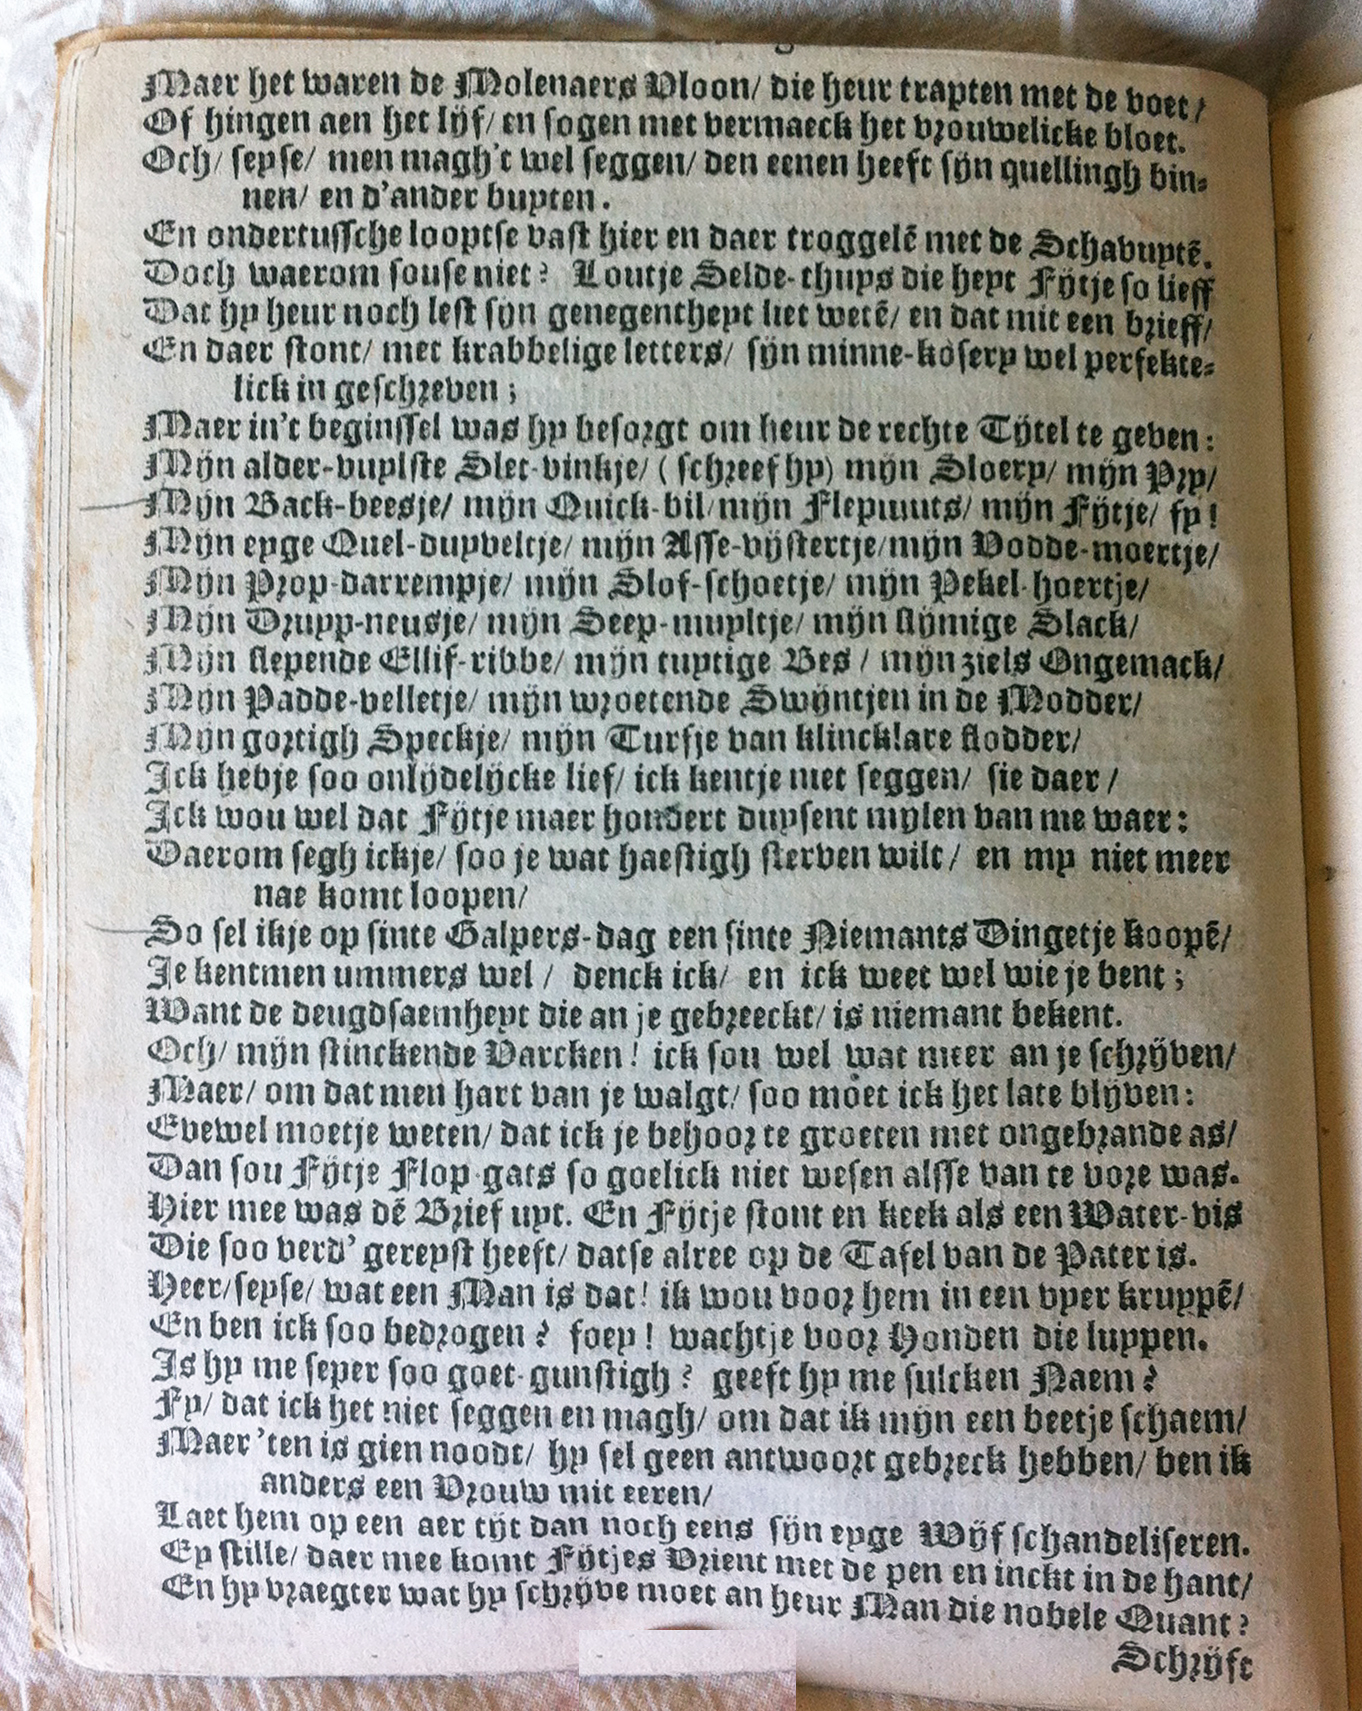 Maer het waren de Molenaers Vloon/ die heur trapten met de voet/
Of hingen aen het lijf/ en sogen met vermaeck het vrouwelicke bloet.
Och/ seyse/ men magh't wel seggen/ den eenen heeft sijn quellingh bin-
nen/ en d'ander buyten.
En ondertussche looptse vast hier en daer troggelē met de Schabuytē.
Doch waerom souse niet? Loutje Selde-thuys die heyt Fijtje so lieff
Dat hy heur noch lest sijn genegentheyt liet wetē/ en dat mit een brieff/
En daer stont/ met krabbelige letters/ sijn minne-kosery wel perfekte-
lick in geschreven;
Maer in't beginssel was hy besorgt om heur de rechte Tijtel te geven:
Mijn alder-vuylste Slet-vinkje/ (schreef hy) mijn Sloery/ mijn Pry/
Mijn Back-beesje/ mijn Quick-bil/ mijn Flepmuts/ mijn Fijtje/ fy!
Mijn eyge Quel-duyveltje/ mijn Asse-vijstertje/ mijn Vodde-moertje/
Mijn Prop-darrempje/ mijn Slof-schoetje/ mijn Pekel-hoertje/
Mijn Drupp-neusje/ mijn Seep-muyltje/ mijn slijmige Slack/
Mijn slepende Ellif-ribbe/ mijn tuytige Bes/ mijn ziels Ongemack/
Mijn Padde-velletje/ mijn wroetende Swijntjen in de Modder/
Mijn gortigh Speckje/ mijn Turfje van klincklare flodder/
Ick hebje soo onlijdelijcke lief/ ick kentje niet seggen/ sie daer/
Ick wou wel dat Fijtje maer hondert duysent mylen van me waer:
Daerom segh ickje/ soo je wat haestigh sterven wilt/ en my niet meer
nae komt loopen/
So sel ikje op sinte Galpers-dag een sinte Niemants Dingetje koopē/
Je kentmen ummers wel/ denck ick/ en ick weet wel wie je bent;
Want de deugdsaemheyt die an je gebreeckt/ is niemant bekent.
Och/ mijn stinckende Varcken! ick sou wel wat meer an je schrijven/
Maer/ om dat men hart van je walgt/ soo moet ick het late blijven:
Evewel moetje weten/ dat ick je behoor te groeten met ongebrande as/
Dan sou Fijtje Flop-gats so goelick niet wesen alsse van te vore was.
Hier mee was dē Brief uyt. En Fijtje stont en keek als een Water-vis
Die soo verd' gereyst heeft/ datse alree op de Tafel van de Pater is.
Heer/ seyse/ wat een Man is dat! ik wou voor hem in een vyer kruypē/
En ben ick soo bedrogen? foey! wachtje voor Honden die luypen.
Is hy me seper soo goet-gunstigh? geeft hy me sulcken Naem?
Fy/ dat ick het niet seggen en magh/ om dat ik mijn een beetje schaem/
Maer 'ten is gien noodt/ hy sel geen antwoort gebreck hebben/ ben ik
anders een Vrouw mit eeren/
Laet hem op een aer tijt dan noch eens sijn eyge Wijf schandeliseren.
Ey stille/ daer mee komt Fijtjes Vrient met de pen en inckt in de hant/
En hy vraegter wat hy schrijve moet an heur Man die nobele Quant?
Schrijft